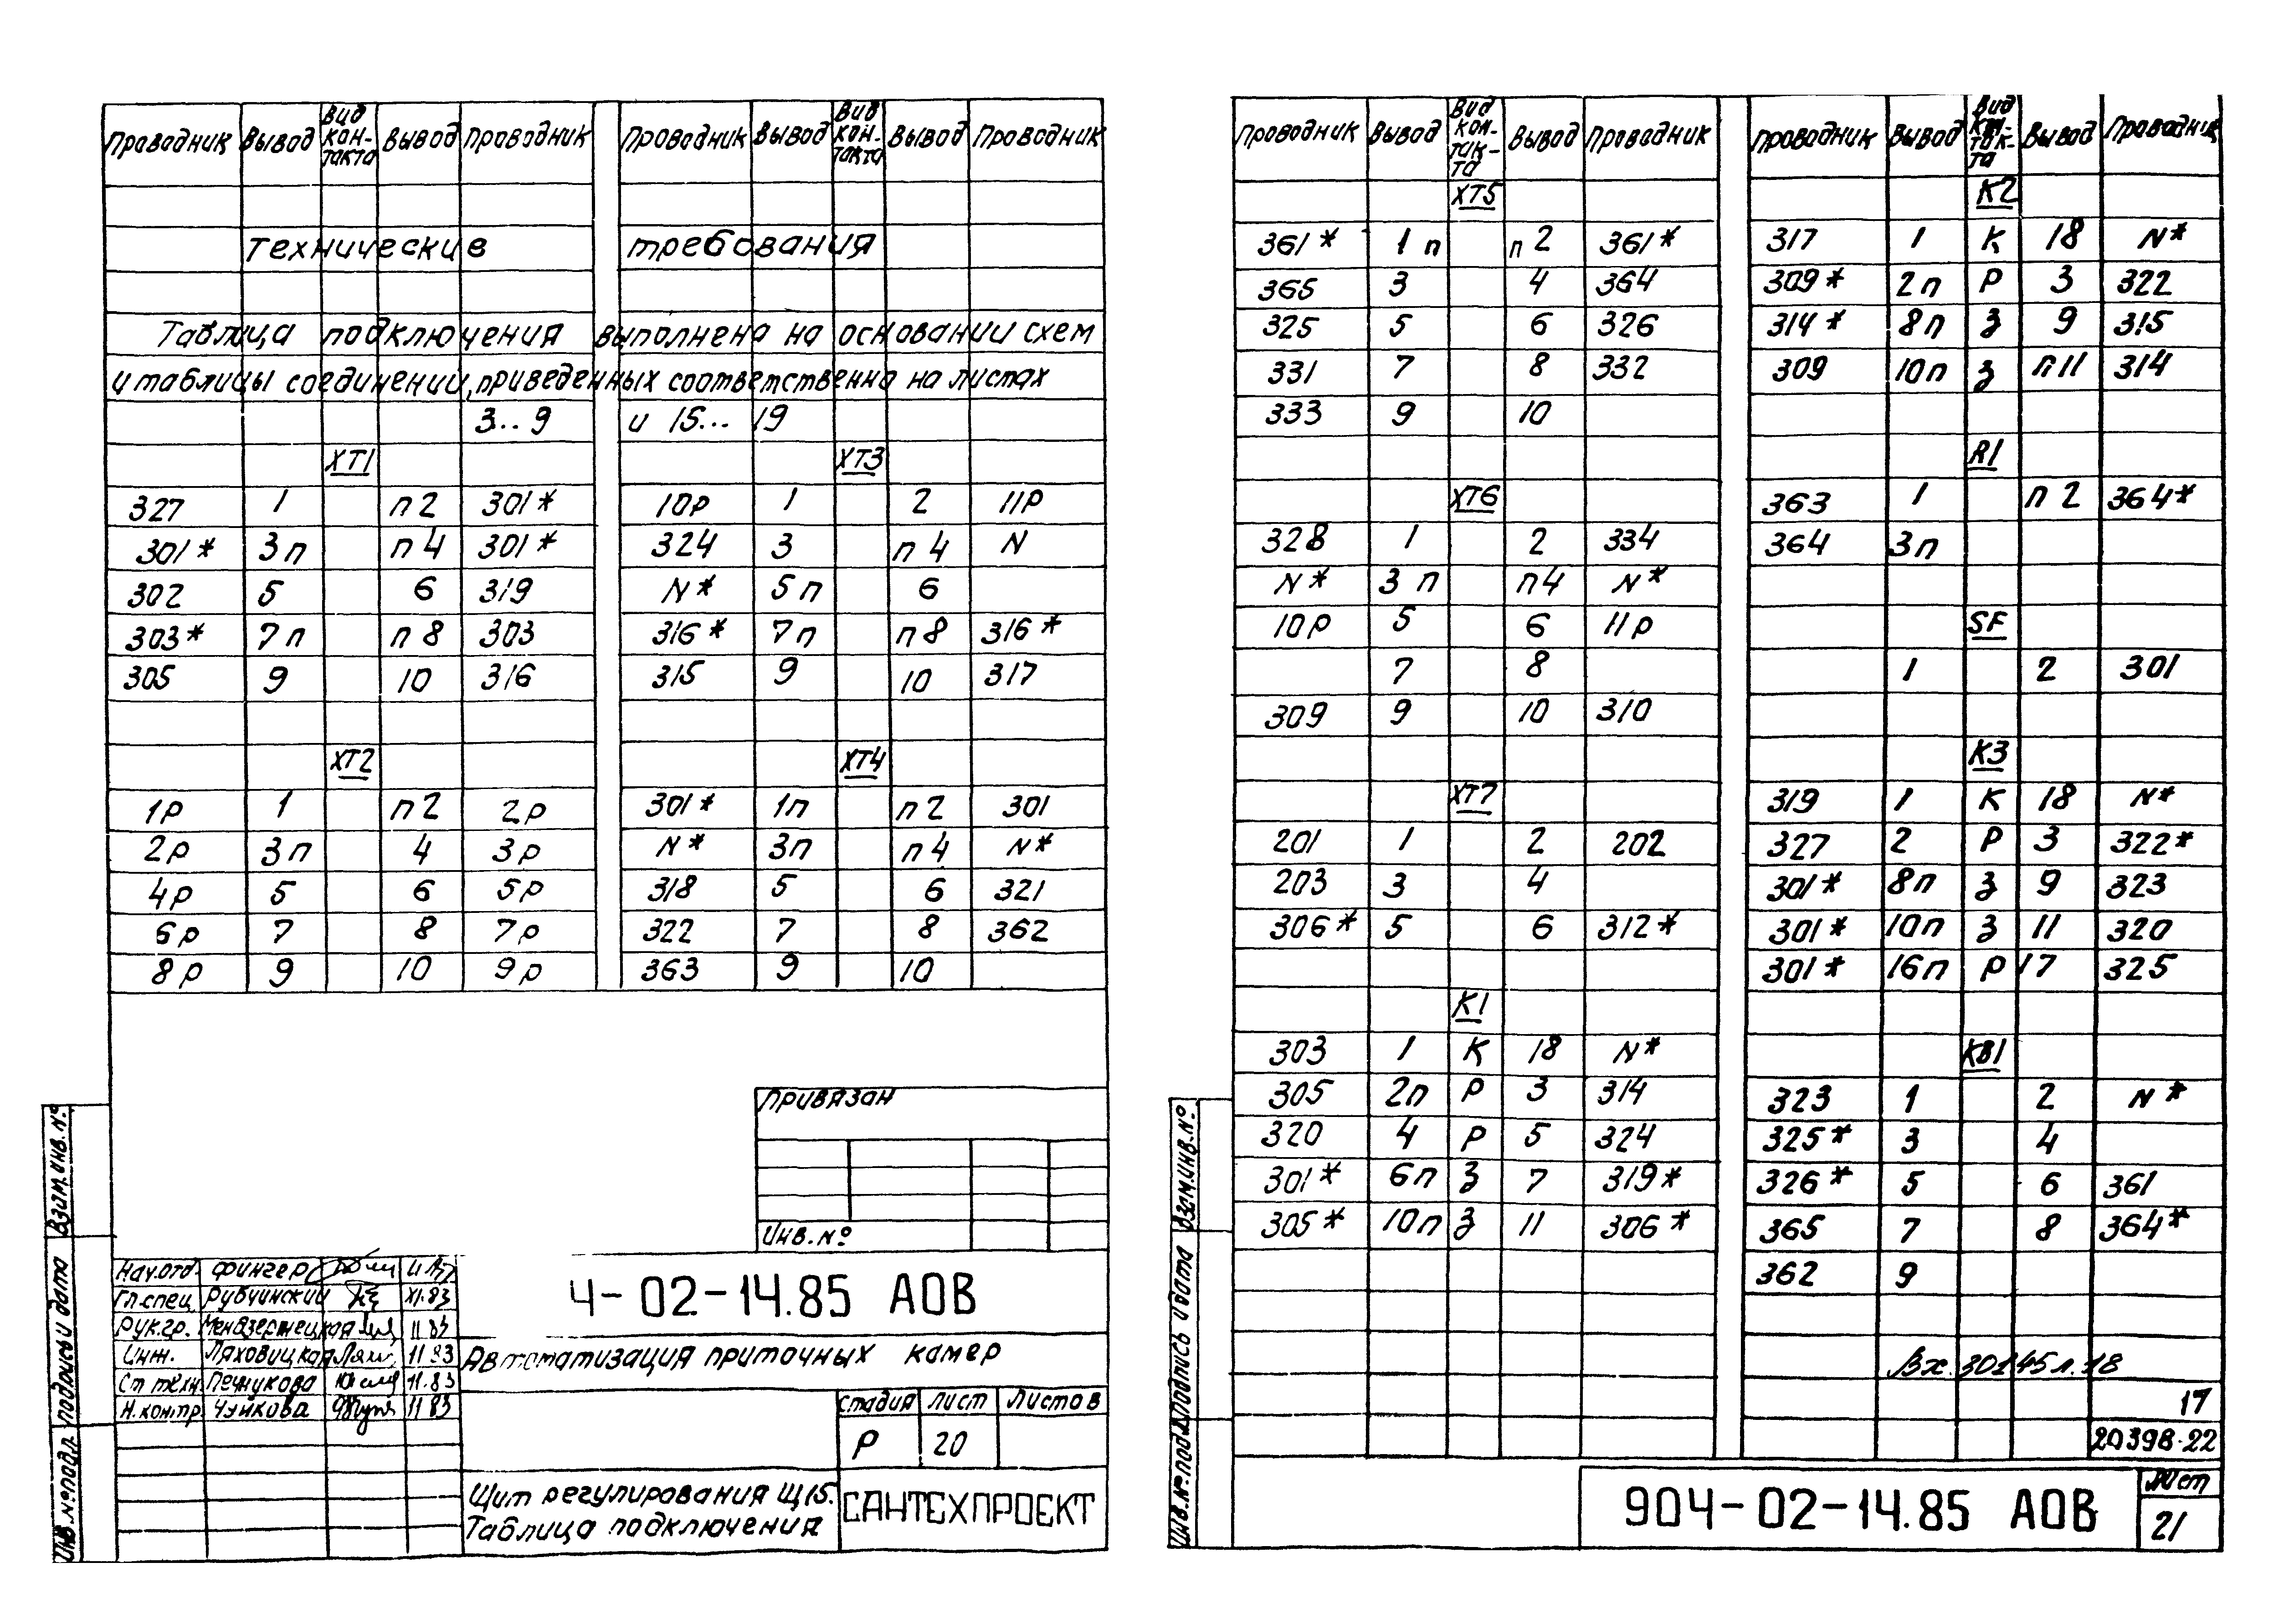 Проводник Вывод Вид кон-такта Вывод Проводник Проводник Вывод Вид кон-такта Вывод Проводник
Технические требования
Таблица подключения выполнена на основании схем
и таблицы соединений, приведенных соответственно на листах
3..9 и 15... 19
ХТ1 ХТ3
327 1 п2 301* 10р 1 2 11р
301* 3п п4 301* 324 3 п4 N
302 5 6 319 N* 5п 6
303* 7п п8 303 316* 7п п8 316*
305 9 10 316 315 9 10 317
ХТ2 ХТ4
1р 1 п2 2р 301* 1п п2 301
2р 3п 4 3р N* 3п п4 N*
4р 5 6 5р 318 5 6 321
6р 7 8 7р 322 7 8 362
8р 9 10 9р 363 9 10
Привязан
Инв.№
Взам.инв.№
Подпись и дата
Инв.№подл.
Нач.отд. Фингер
Гл.спец Рубчинский XI.83
Рук.гр. 11.83
Инж. Ляховицкая 11.83
Ст техн. Печчукова 11.83
Н.контр. Чуйкова 11 83
4-02-14.85 АОВ
Автоматизация приточных камер
Стадия Лист Листов
Р 20
Щит регулирования Щ15.
Таблица подключения
САНТЕХПРОЕКТ
Проводник Вывод Вид кон-так-та Вывод Проводник Проводник Вывод Вид кон-так-та Вывод Проводник
ХТ5 К2
361* 1п п2 361* 317 1 К 18 N*
365 3 4 364 309* 2п Р 3 322
325 5 6 326 314* 8п З 9 315
331 7 8 332 309 10п З п11 314
333 9 10
R1
ХТ6 363 1 п2 364*
328 1 2 334 364 3п
N* 3п п4 N*
10р 5 6 11р SF
7 8 1 2 301
309 9 10 310
К3
ХТ7 319 1 К 18 N*
201 1 2 202 327 2 Р 3 322*
203 3 4 301* 8п З 9 323
306* 5 6 312* 301* 10п З 11 320
301* 16п Р 17 325
К1
303 1 К 18 N* КВ1
305 2п Р 3 314 323 1 2 N*
320 4 Р 5 324 325* 3 4
301* 6п З 7 319* 326* 5 6 361
305* 10п З 11 306* 365 7 8 364*
362 9
Вх. 30145 л. 18
17
20398-22
Взам.инв.№
Подпись и дата
Инв.№подл.
904-02-14.85 АОВ
Лист
21